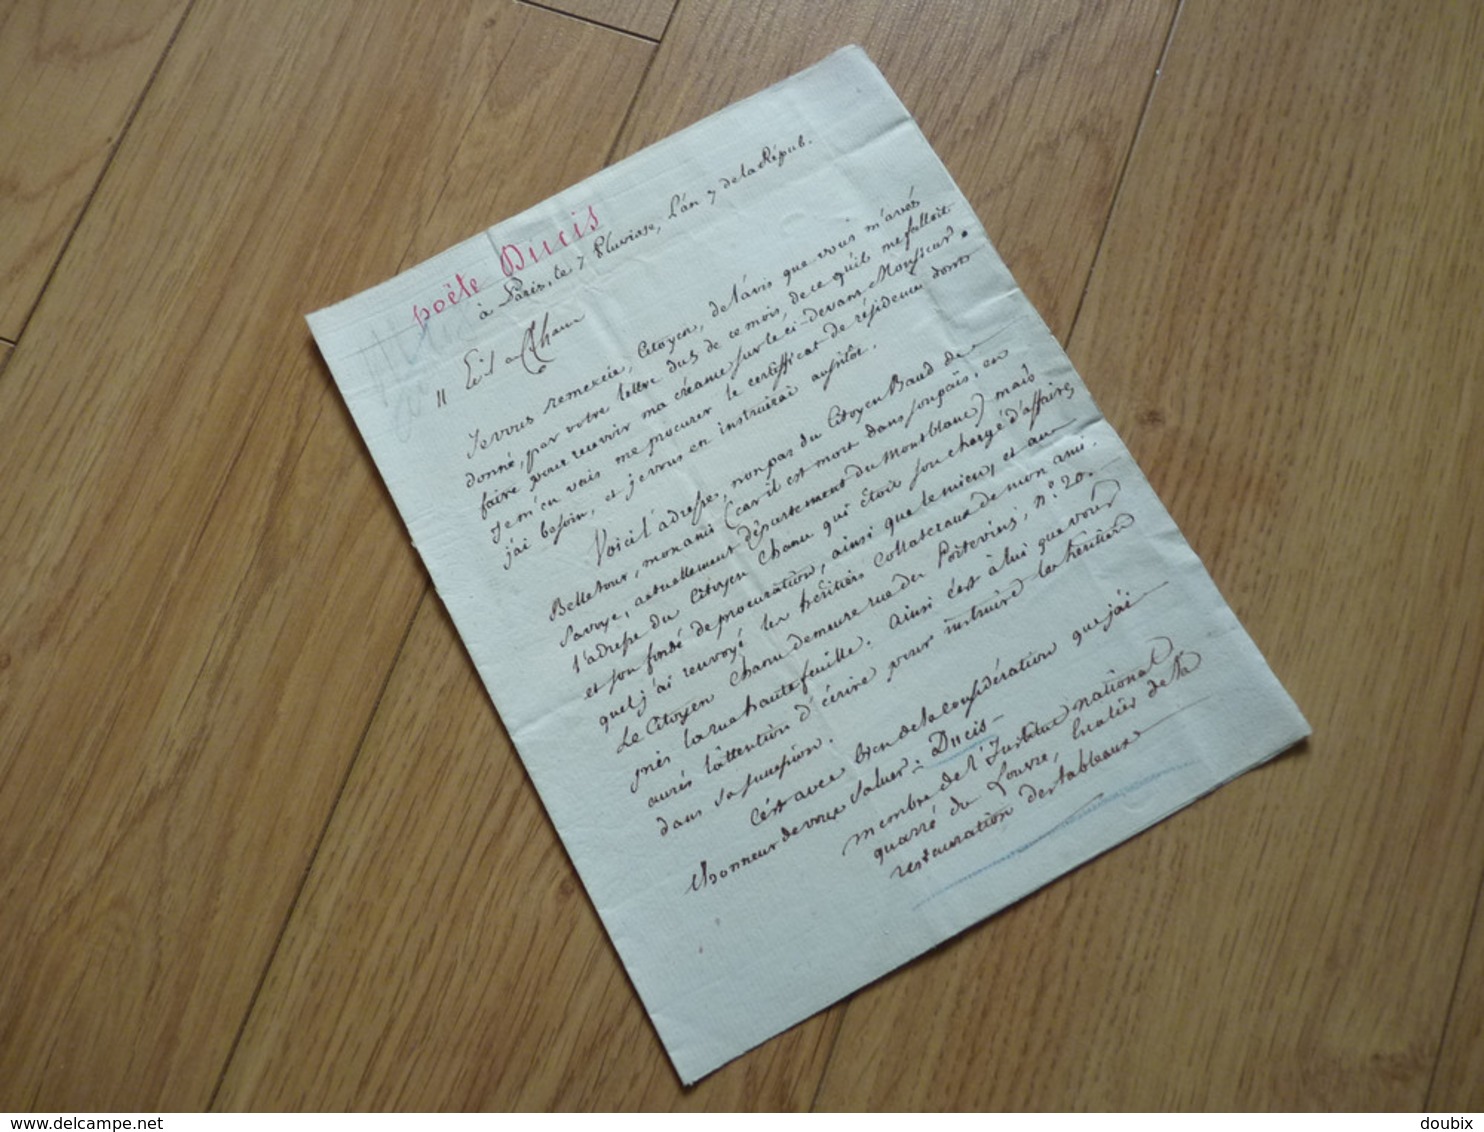 poëte Ducis
à Paris, le 7 Pluviose, l'an 7 de la Répub.
Je vous remercie, Citoyen, de l'avis que vous m'avés
donné, par votre lettre du 5 de ce mois, de ce qu'il me falloit
faire pour recevoir ma créance sur le ci-devant Monsieur.
Je m'en vais me procurer le certifficat de résidence dont
j'ai besoin, et je vous en instruirai aussitôt.
Voici l'adresse, non pas du Citoyen Baud de
Belletour, mon ami (car il est mort dans son païs, en
Savoye, actuellement département du Montblanc) mais
l'adresse du Citoyen Chanu qui étoit son chargé d'affaires
et son fondé de procuration, ainsi que le mien, et au
quel j'ai renvoyé les héritiers collateraux de mon ami.
Le Citoyen Chanu demeure rue des Poitevins, N°. 20.
près la rue hautefeuille. ainsi c'est à lui que vous
aurés l'attention d'écrire pour instruire les héritiers
dans sa succession.
C'est avec bien de la considération que j'ai
l'honneur de vous saluer. Ducis
membre de l'Institut national
quarré du Louvre, Escalier de la
restauration des tableaux
delcampe.net
doubix